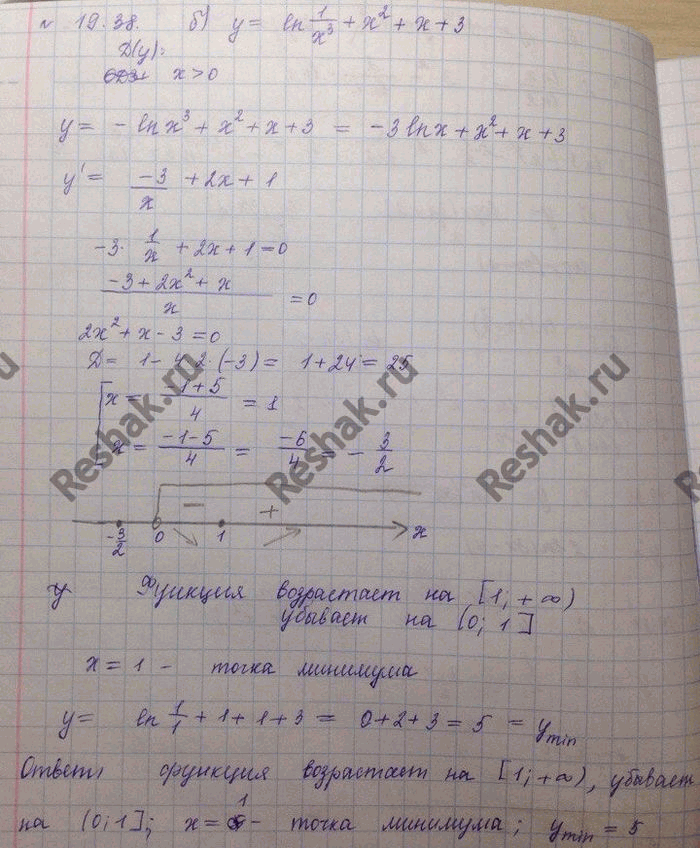 № 19.38. б) y = ln 1/x³ + x² + x + 3
D(y):
x > 0
y = - ln x³ + x² + x + 3 = -3 ln x + x² + x + 3
y' = -3/x + 2x + 1
-3 · 1/x + 2x + 1 = 0
(-3 + 2x² + x)/x = 0
2x² + x - 3 = 0
D = 1 - 4·2·(-3) = 1 + 24 = 25
[ x = (-1+5)/4 = 1
x = (-1-5)/4 = -6/4 = - 3/2
- +
-3/2 0 1 x
Функция возрастает на [1; +∞)
убывает на (0; 1]
x = 1 - точка минимума
y = ln 1/1 + 1 + 1 + 3 = 0 + 2 + 3 = 5 = y min
Ответ: функция возрастает на [1; +∞), убывает
на (0; 1]; x = 1 - точка минимума; y min = 5
Reshak.ru
Reshak.ru
Reshak.ru